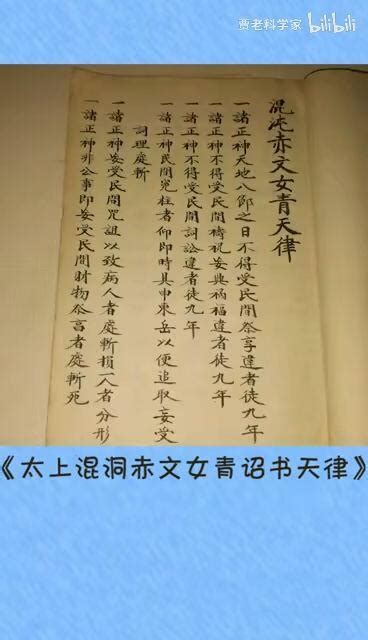 贾老科学家 bilibili
混沌赤文女青天律
一諸正神天地八節之日不得受民間祭享違者徒九年
一諸正神不得受民間禱祝妄興禍福違者徒九年
一諸正神不得受民間詞訟違者徒九年
一諸正神民間冤枉者仰即時具申東岳以便追取妄受
詞理處斬
一諸正神妄受民間咒詛以致病人者處斬損一人者分形
一諸正神非公事即妄受民間財物祭享者處斬死
《太上混洞赤文女青诏书天律》